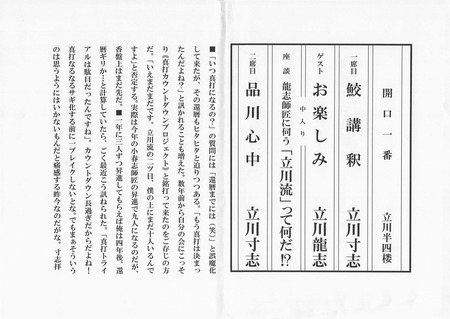 開口一番 立川半四楼
一席目 鮫講釈 立川寸志
ゲスト お楽しみ 立川龍志
中入り
座談 龍志師匠に伺う「立川流」って何だ!?
二席目 品川心中 立川寸志
■「いつ真打になるの?」の質問には「還暦までには(笑)」と誤魔化
して来たが、その還暦もヒタヒタと迫りつつある。「もう真打は決まっ
たんだよね?」と訊かれることも増えた。数年前から自分の会にこっそ
り《真打カウントダウンプロジェクト》と銘打って来たのをご存じの方
だ。「いえまだまだです。立川流の二ツ目、僕の上にまだ十人いるんで
すよ」と否定する。実際は今年の小春志師匠の昇進で九人になるのだが、
香盤上はまだ先だ。■一年に三人ずつ昇進してもらえば俺は四年後、還
暦ギリか…と計算していたら、ごく最近こう訊ねられた。「真打トライ
アルは駄目だったんですね」。カウントダウン長過ぎだからだよね!
真打なるなるサギ化する前に一ブレイクしないとな。でもまぁそういう
のは思うようにはいかないもんだと痛感する昨今なのだがな。寸志拝